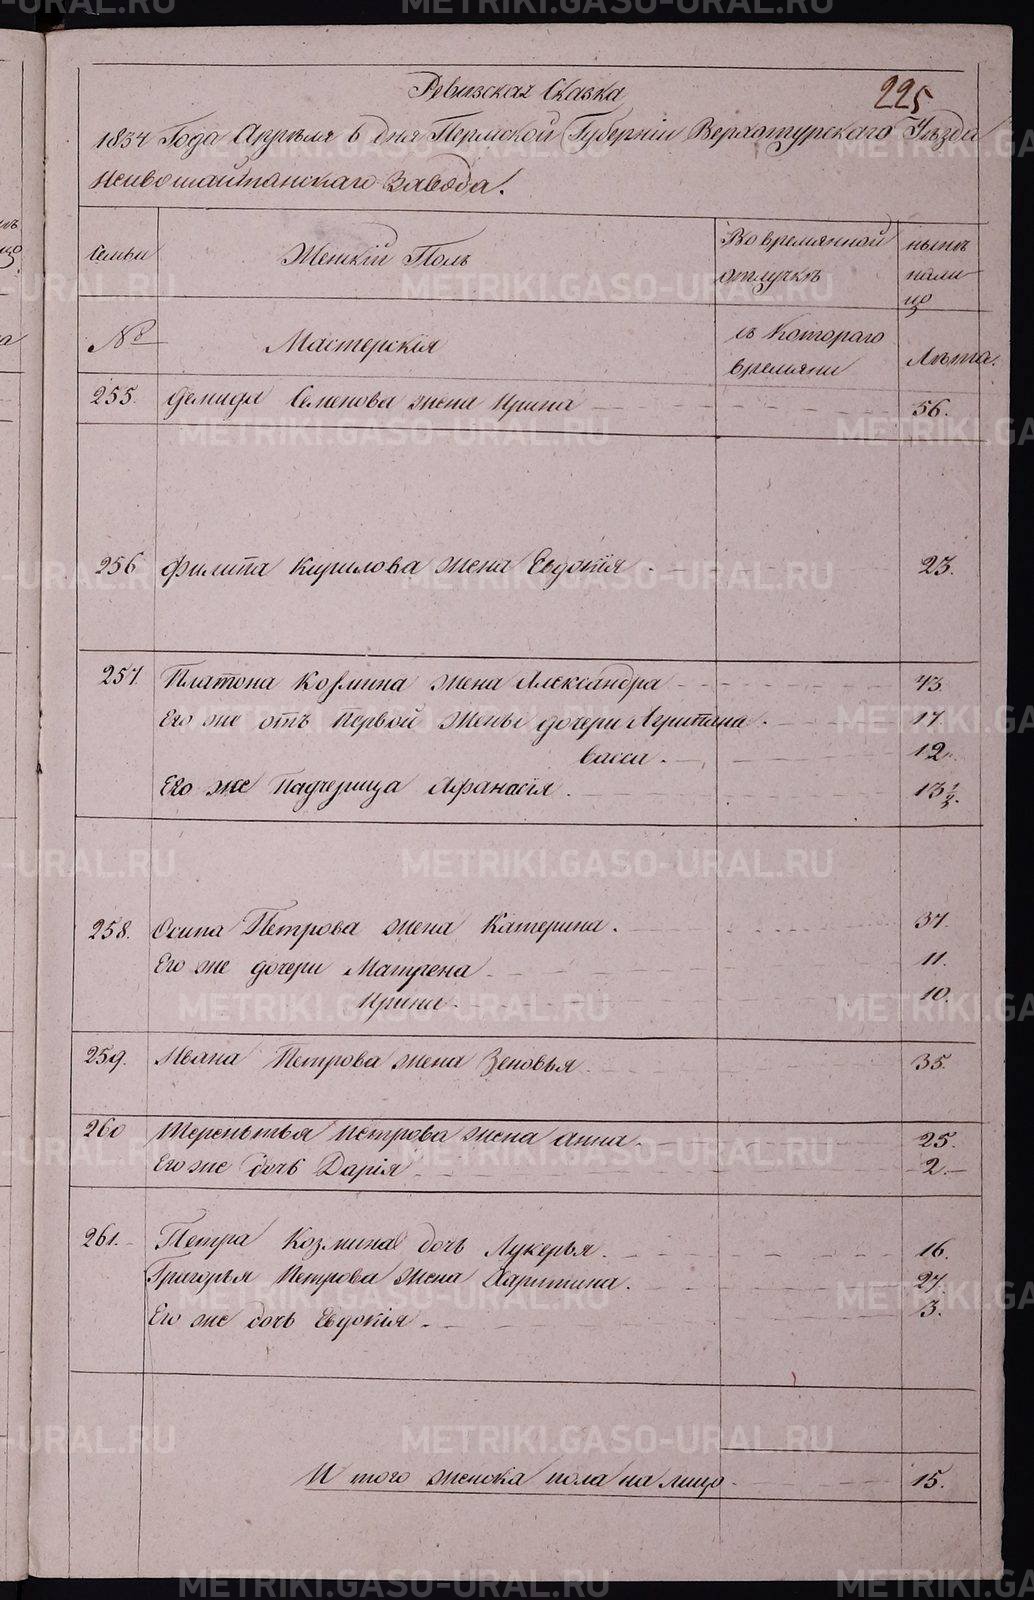 METRIKI.GASO-URAL.RU
225
Ревизская Сказка
1834 Года Апреля 6 дня Пермской Губерніи Верхотурскаго Уезда
Нейвошайтанскаго Завода.
Семьи
Женскій Полъ
Во времянной отлучкѣ
ныне налицо
№
Мастерскія
съ Котораго времяни
Лѣта.
255. Демида Семенова жена Ирина 56.
256 Филипа Кирилова жена Евдокія 23.
257. Платона Козмина жена Александра 43.
Его же отъ Первой жены дочери Агрипина 17.
васса. 12.
Его же Падчерица Афанасія. 13 1/2.
258. Осипа Петрова жена Катерина. 37.
Его же дочери Матрена 11.
Ирина. 10.
259. Ивана Петрова жена Зеновья. 35.
260 Терентья Петрова жена анна. 25.
Его же дочь Дарія 2.
261. Петра Козмина дочь Лукерья. 16.
Григорья Петрова жена Харитина. 27.
Его же дочь Евдокія. 3.
И того женска пола на лицо 15.